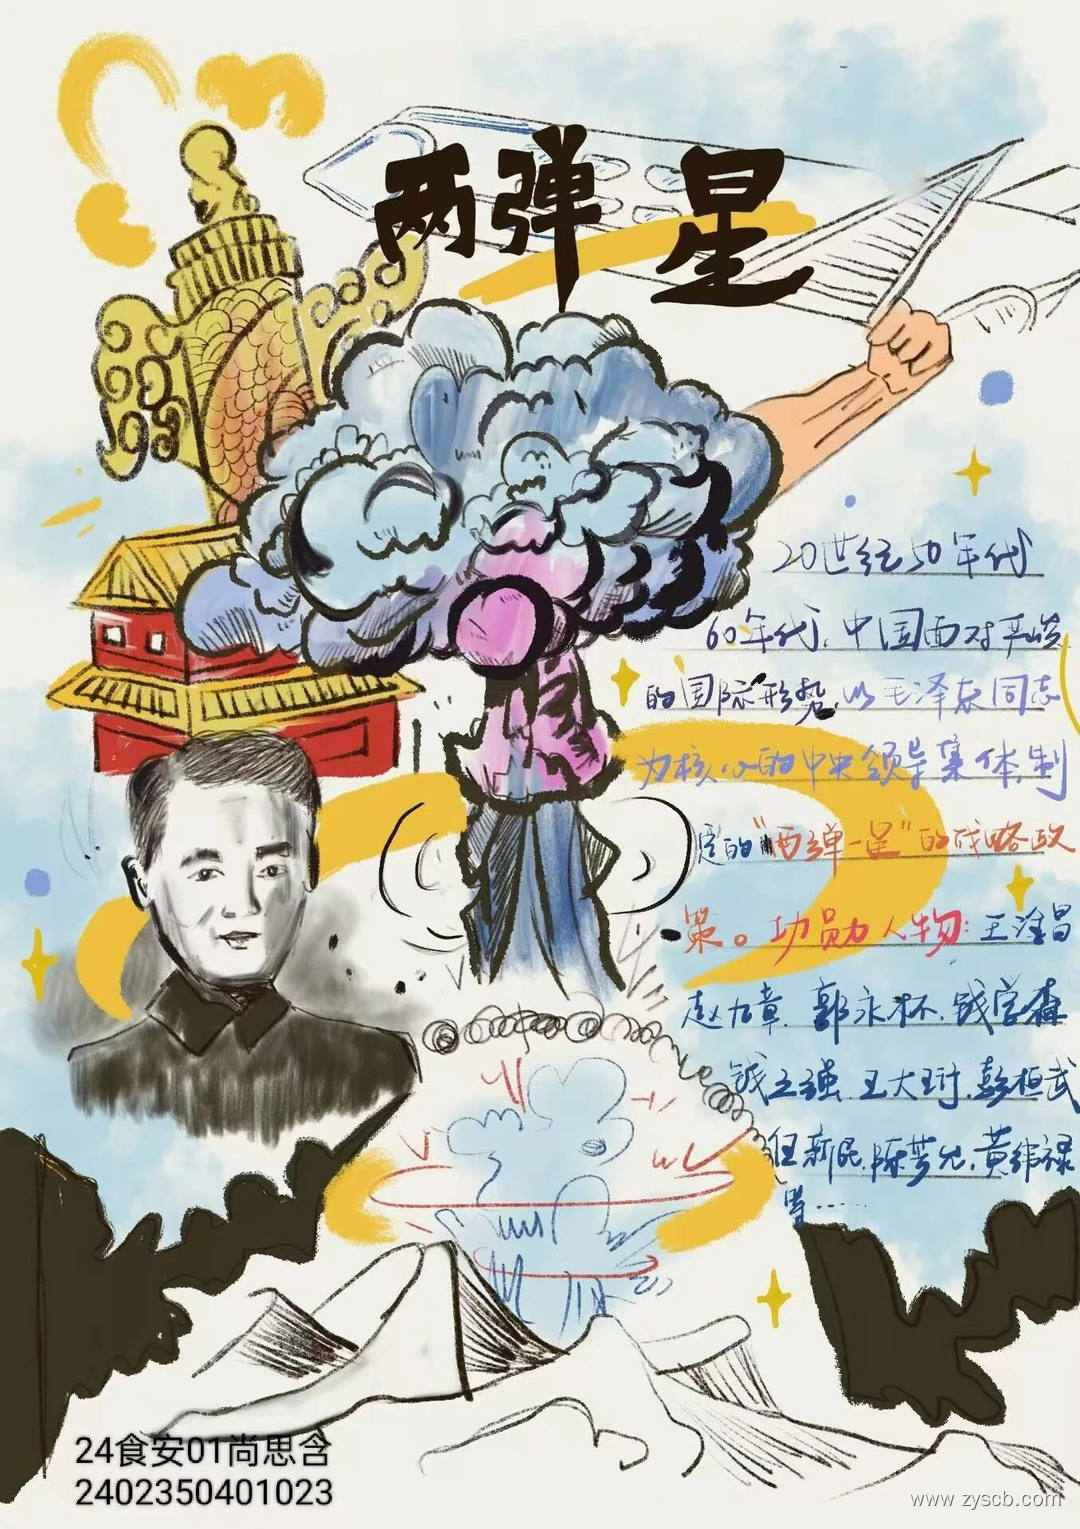 两弹 星
20世纪50年代
60年代,中国面对严峻
的国际形势,以毛泽东同志
为核心的中央领导集体,制
定的"两弹一星"的战略政
策。功勋人物:王淦昌
赵九章.郭永怀.钱学森
钱三强 王大珩.彭桓武
任新民.陈芳允.黄纬禄
等……
24食安01尚思含
2402350401023
www.zyscb.com